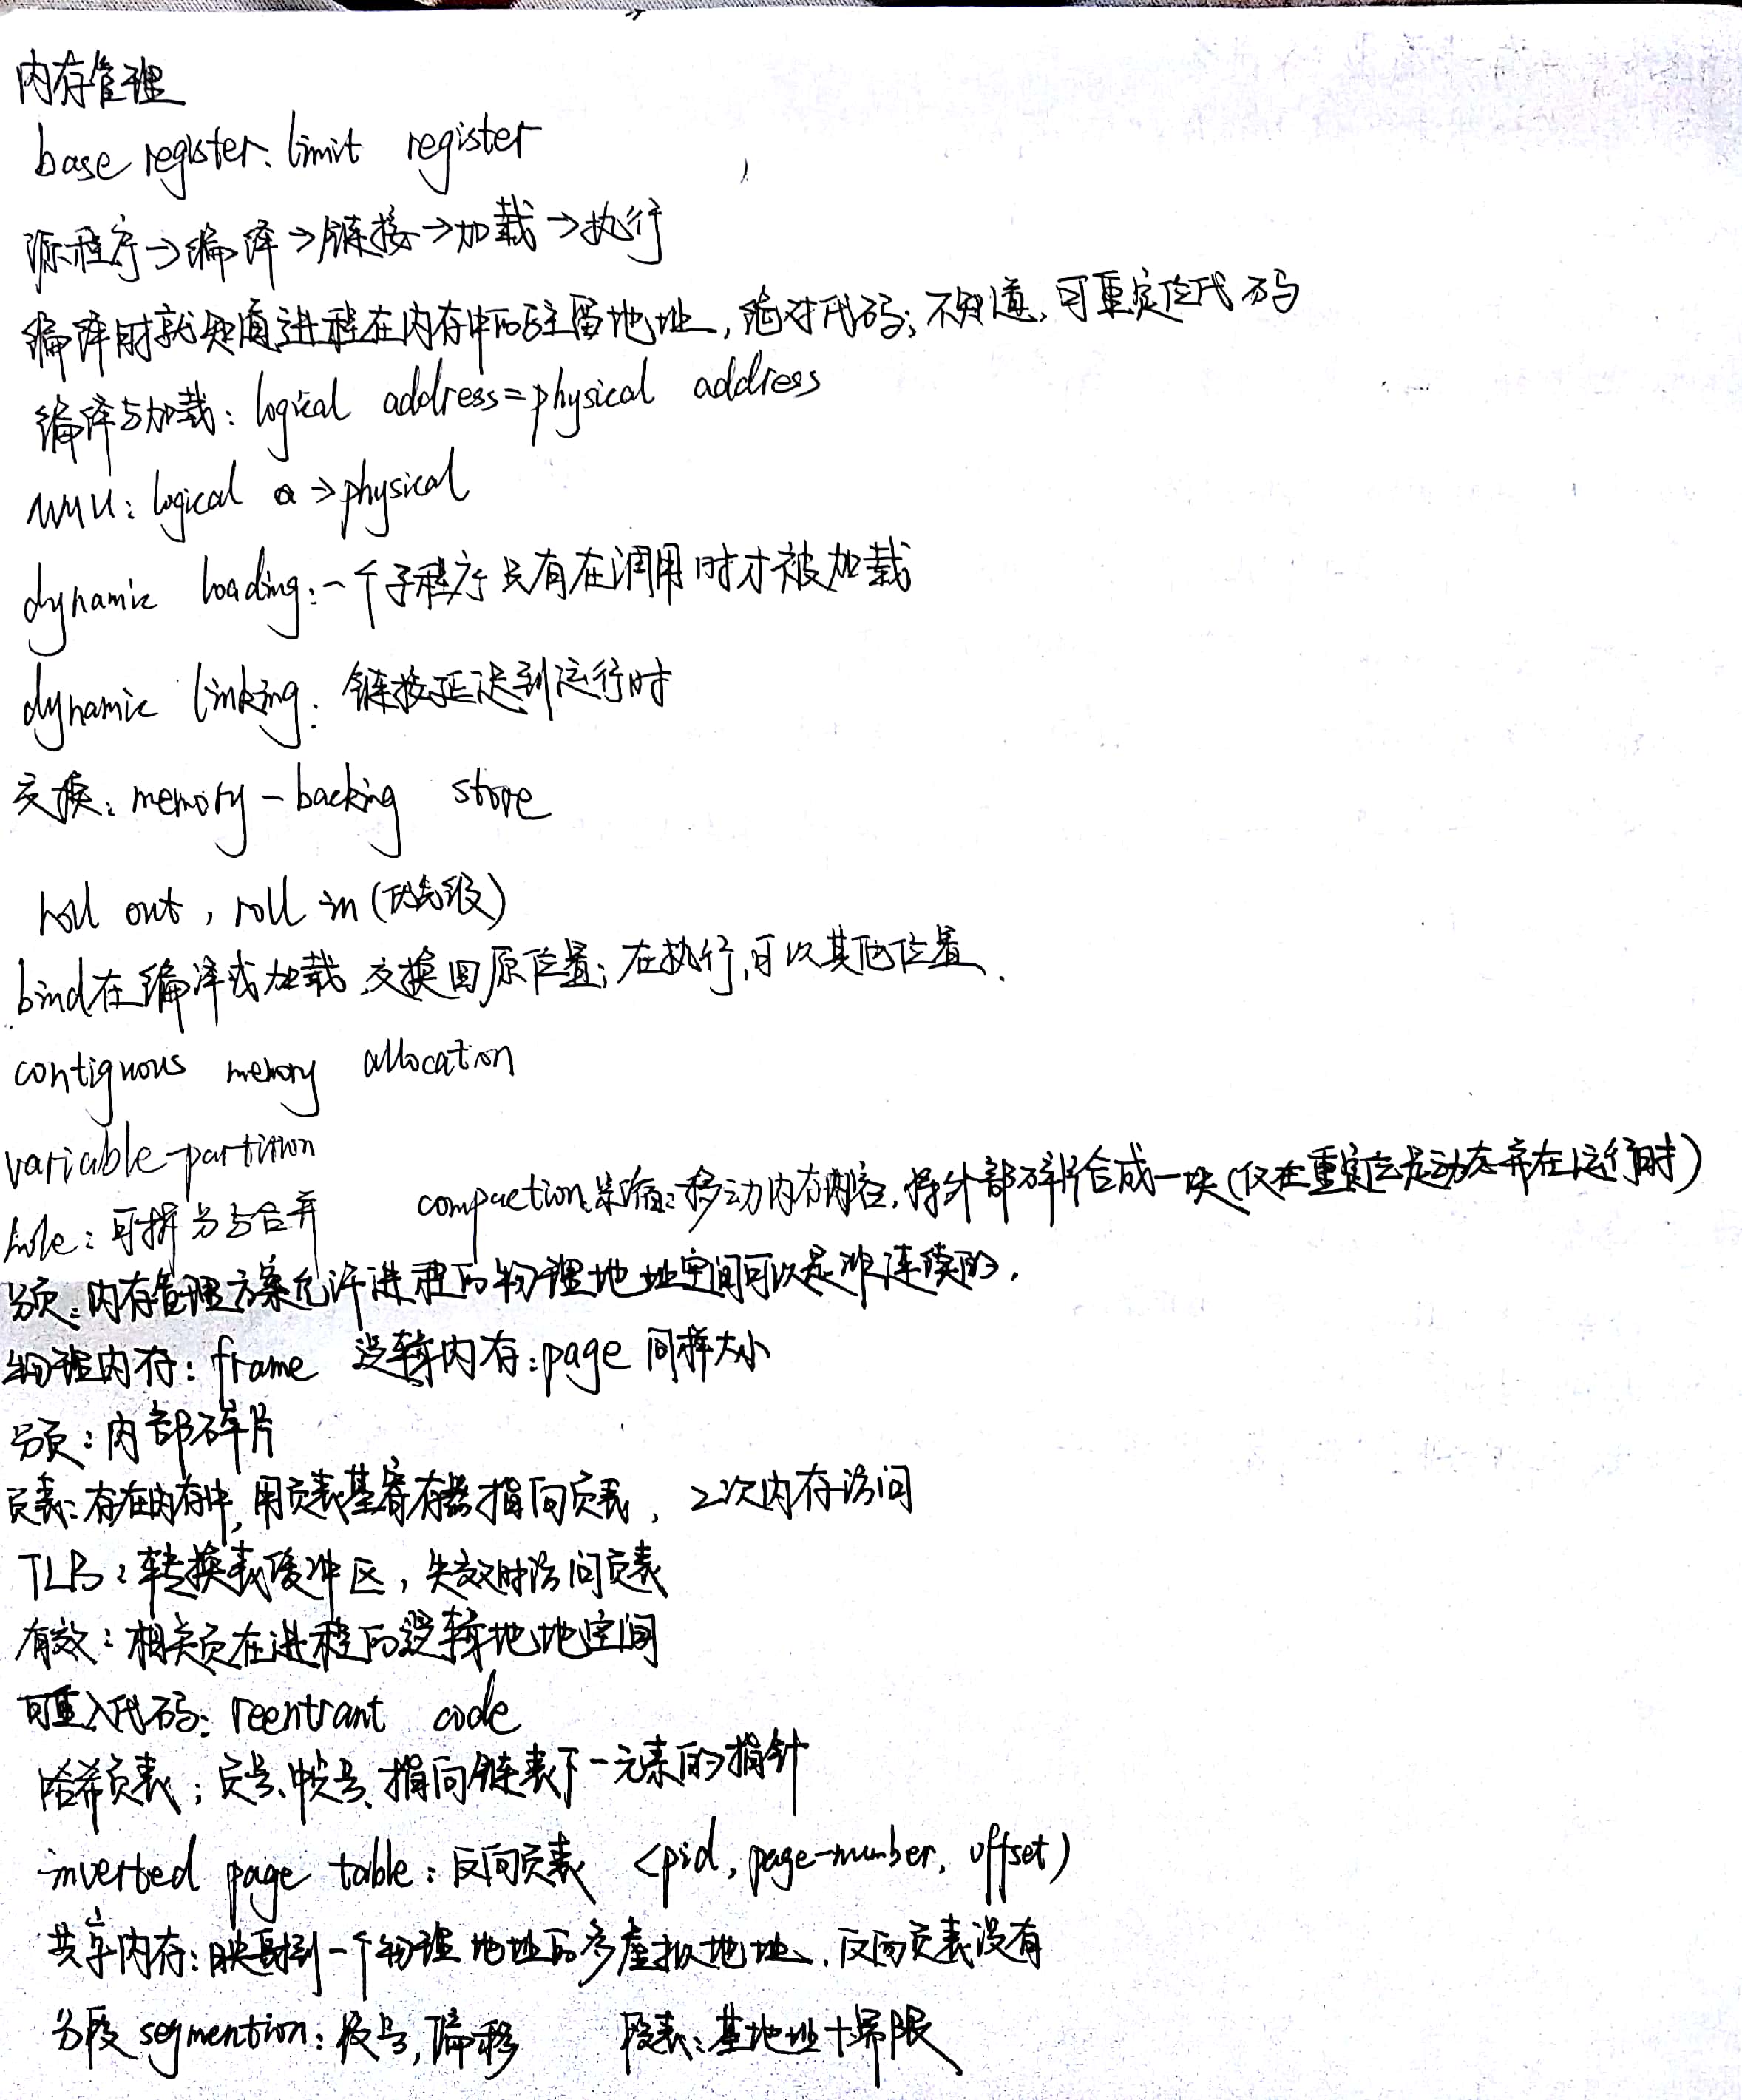 内存管理
base register、limit register
源程序→编译→链接→加载→执行
编译时就知道进程在内存中的驻留地址，绝对代码；不知道，可重定位代码
编译与加载：logical address=physical address
MMU：logical a→physical
dynamic loading：一个子程序只有在调用时才被加载
dynamic linking：链接延迟到运行时
交换：memory-backing store
roll out，roll in（优先级）
bind在编译或加载，交换回原位置；在执行，可以其他位置.
contiguous memory allocation
variable-partition
hole：可拆分与合并 compaction、紧缩：移动内存内容，将外部碎片合成一块（仅在重定位是动态并在运行时）
分页：内存管理方案允许进程的物理地址空间可以是非连续的.
物理内存：frame 逻辑内存：page 同样大小
分页：内部碎片
页表：存在内存中，用页表基寄存器指向页表，2次内存访问
TLB：转换表缓冲区，失效时访问页表
有效：相关页在进程的逻辑地址空间
可重入代码：reentrant code
哈希页表：页号、帧号、指向链表下一元素的指针
inverted page table：反向页表 <pid, page-number, offset)
共享内存：映射到一个物理地址的多虚拟地址，反向页表没有
分段segmention：段号，偏移 段表：基地址+界限